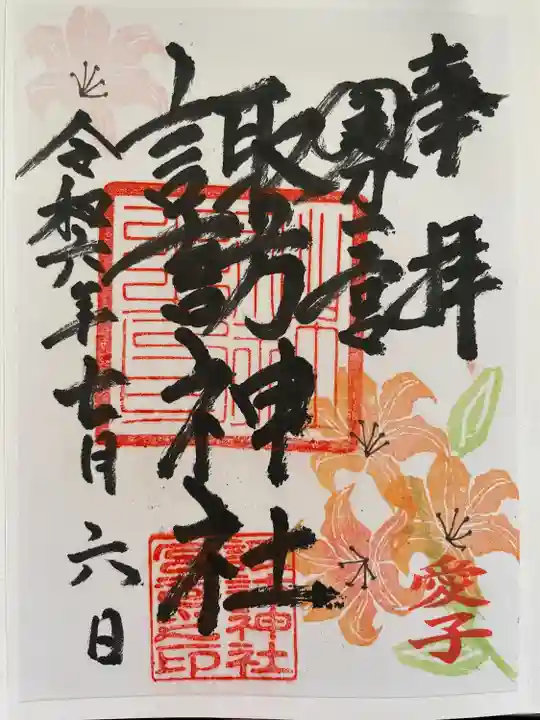 奉拝
諏訪神社
令和六年七月六日
愛子
神社
之印